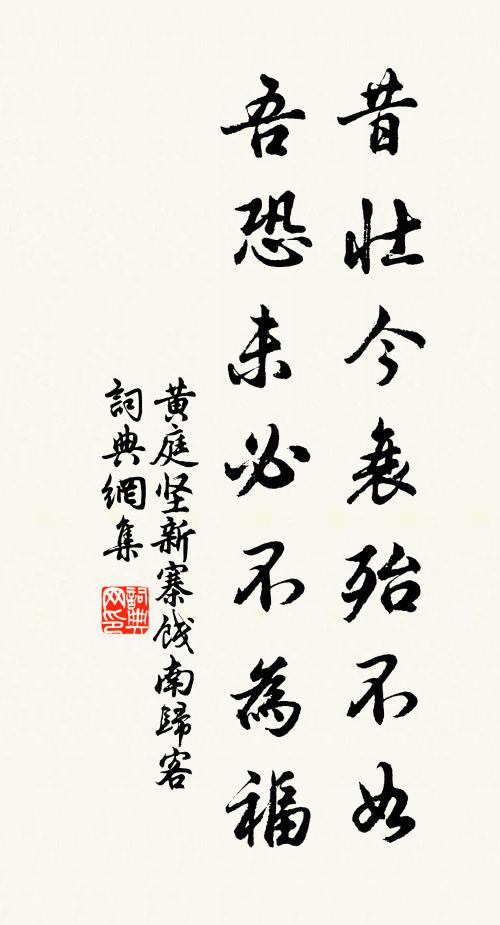 昔壯今衰殆不如
吾恐未必不為福
黃庭坚新寨餞南歸客
詞典網集
詞典网印